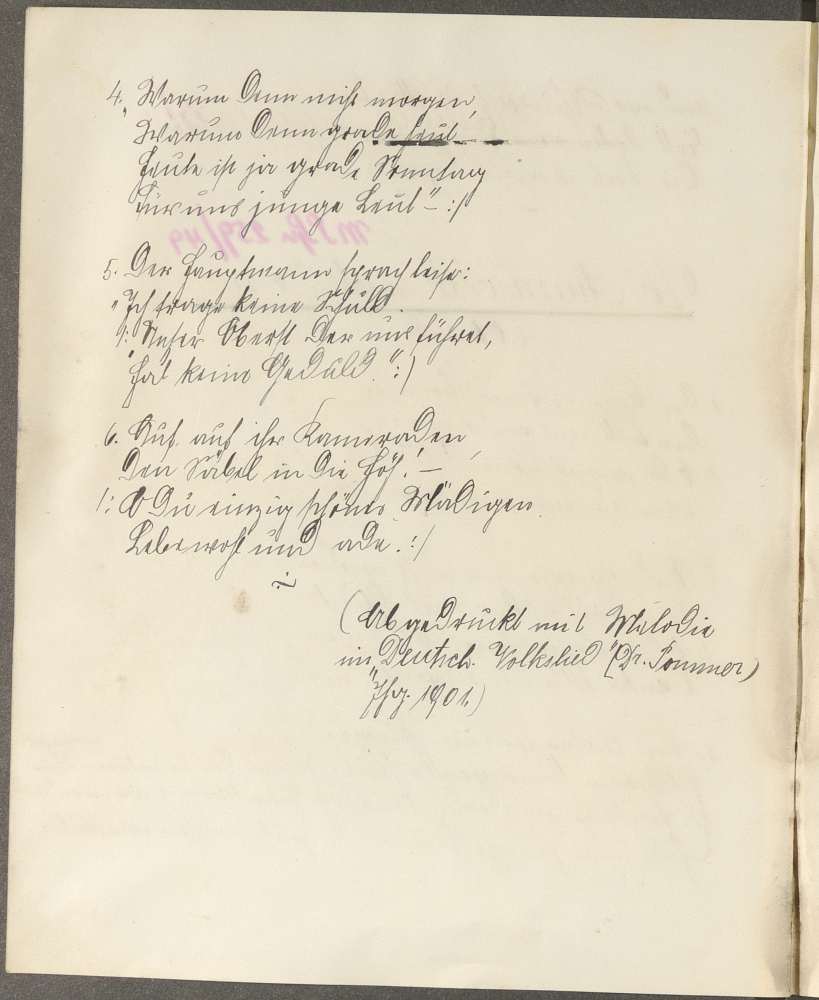 4. Warum denn nicht morgen,
„Warum denn grade heut —
Heute ist ja grade Sonntag
Für uns junge Leut" – :/
5. Der Hauptmann sprach leise:
„Ich trage keine Schuld.
/: Unser Oberst der uns führet,
hat keine Geduld.":/
6. Auf auf ihr Kameraden,
Den Säbel in die Höh'! –
/: O Du einzig schönes Mädigen
Lebe wohl und ade. :/
(Abgedruckt mit Melodie
im „Deutsch. Volkslied" (Dr. Pommer)
Jhg. 1901.)